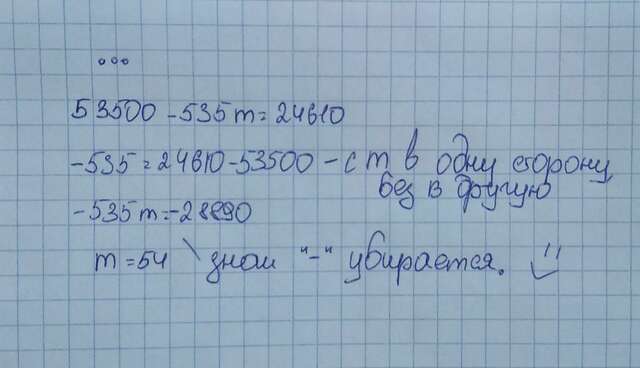 53500 - 535m = 24610
-535 = 24610 - 53500 - с m в одну сторону,
без в другую
-535m = -28890
m = 54 \ знак "-" убирается.